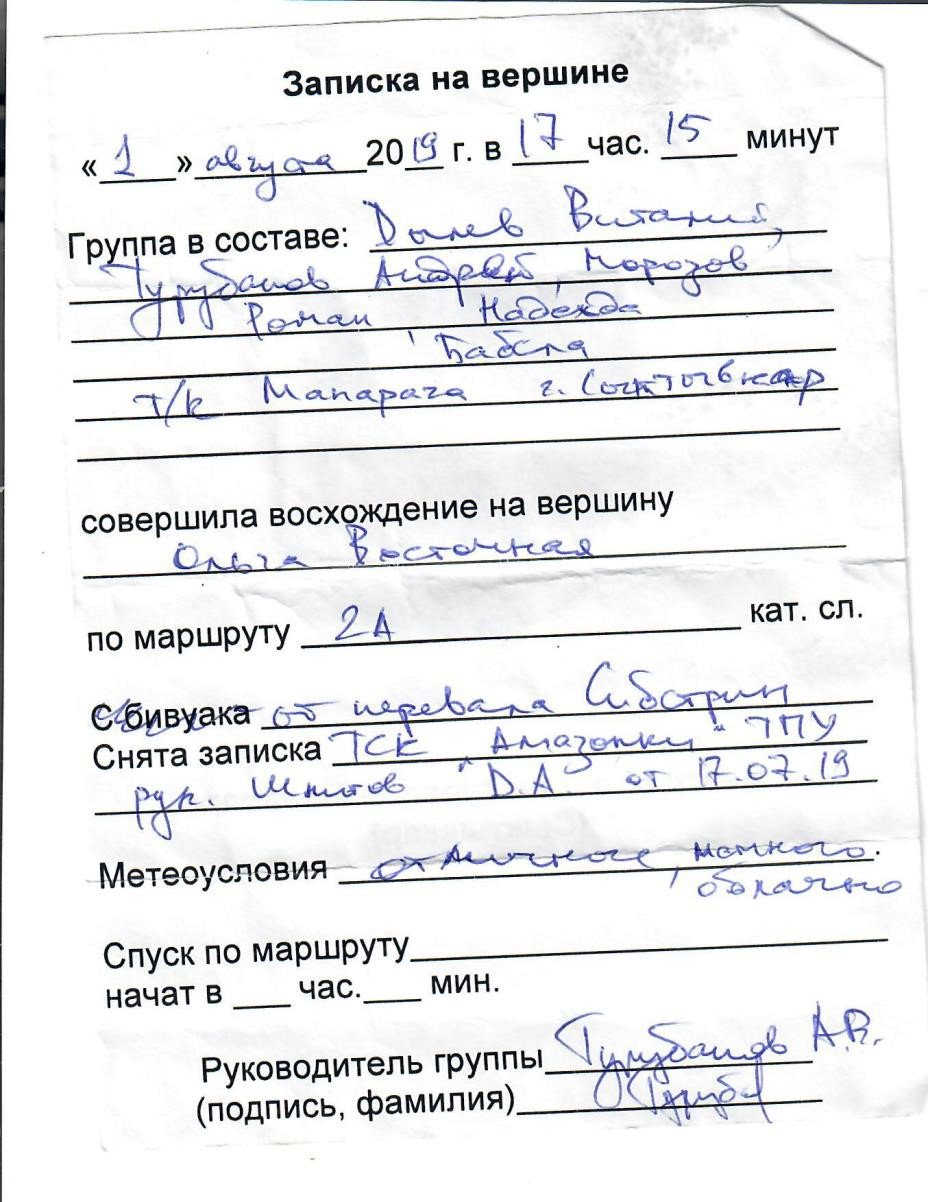 Записка на вершине
«1» августа 2019 г. в 17 час. 15 минут
Группа в составе: Виталий,
Турубанов Андрей, Морозов
Роман, Надежда
т/к Мапарага г. Сыктывкар
совершила восхождение на вершину
Ольга Восточная
по маршруту 2А кат. сл.
С бивуака от перевала Сибстрин
Снята записка ТСК "Амазонки" ТПУ
рук. D.A. от 17.07.19
Метеоусловия отличные, немного
облачно
Спуск по маршруту
начат в ___ час.___ мин.
Руководитель группы Турубанов А.В.
(подпись, фамилия)